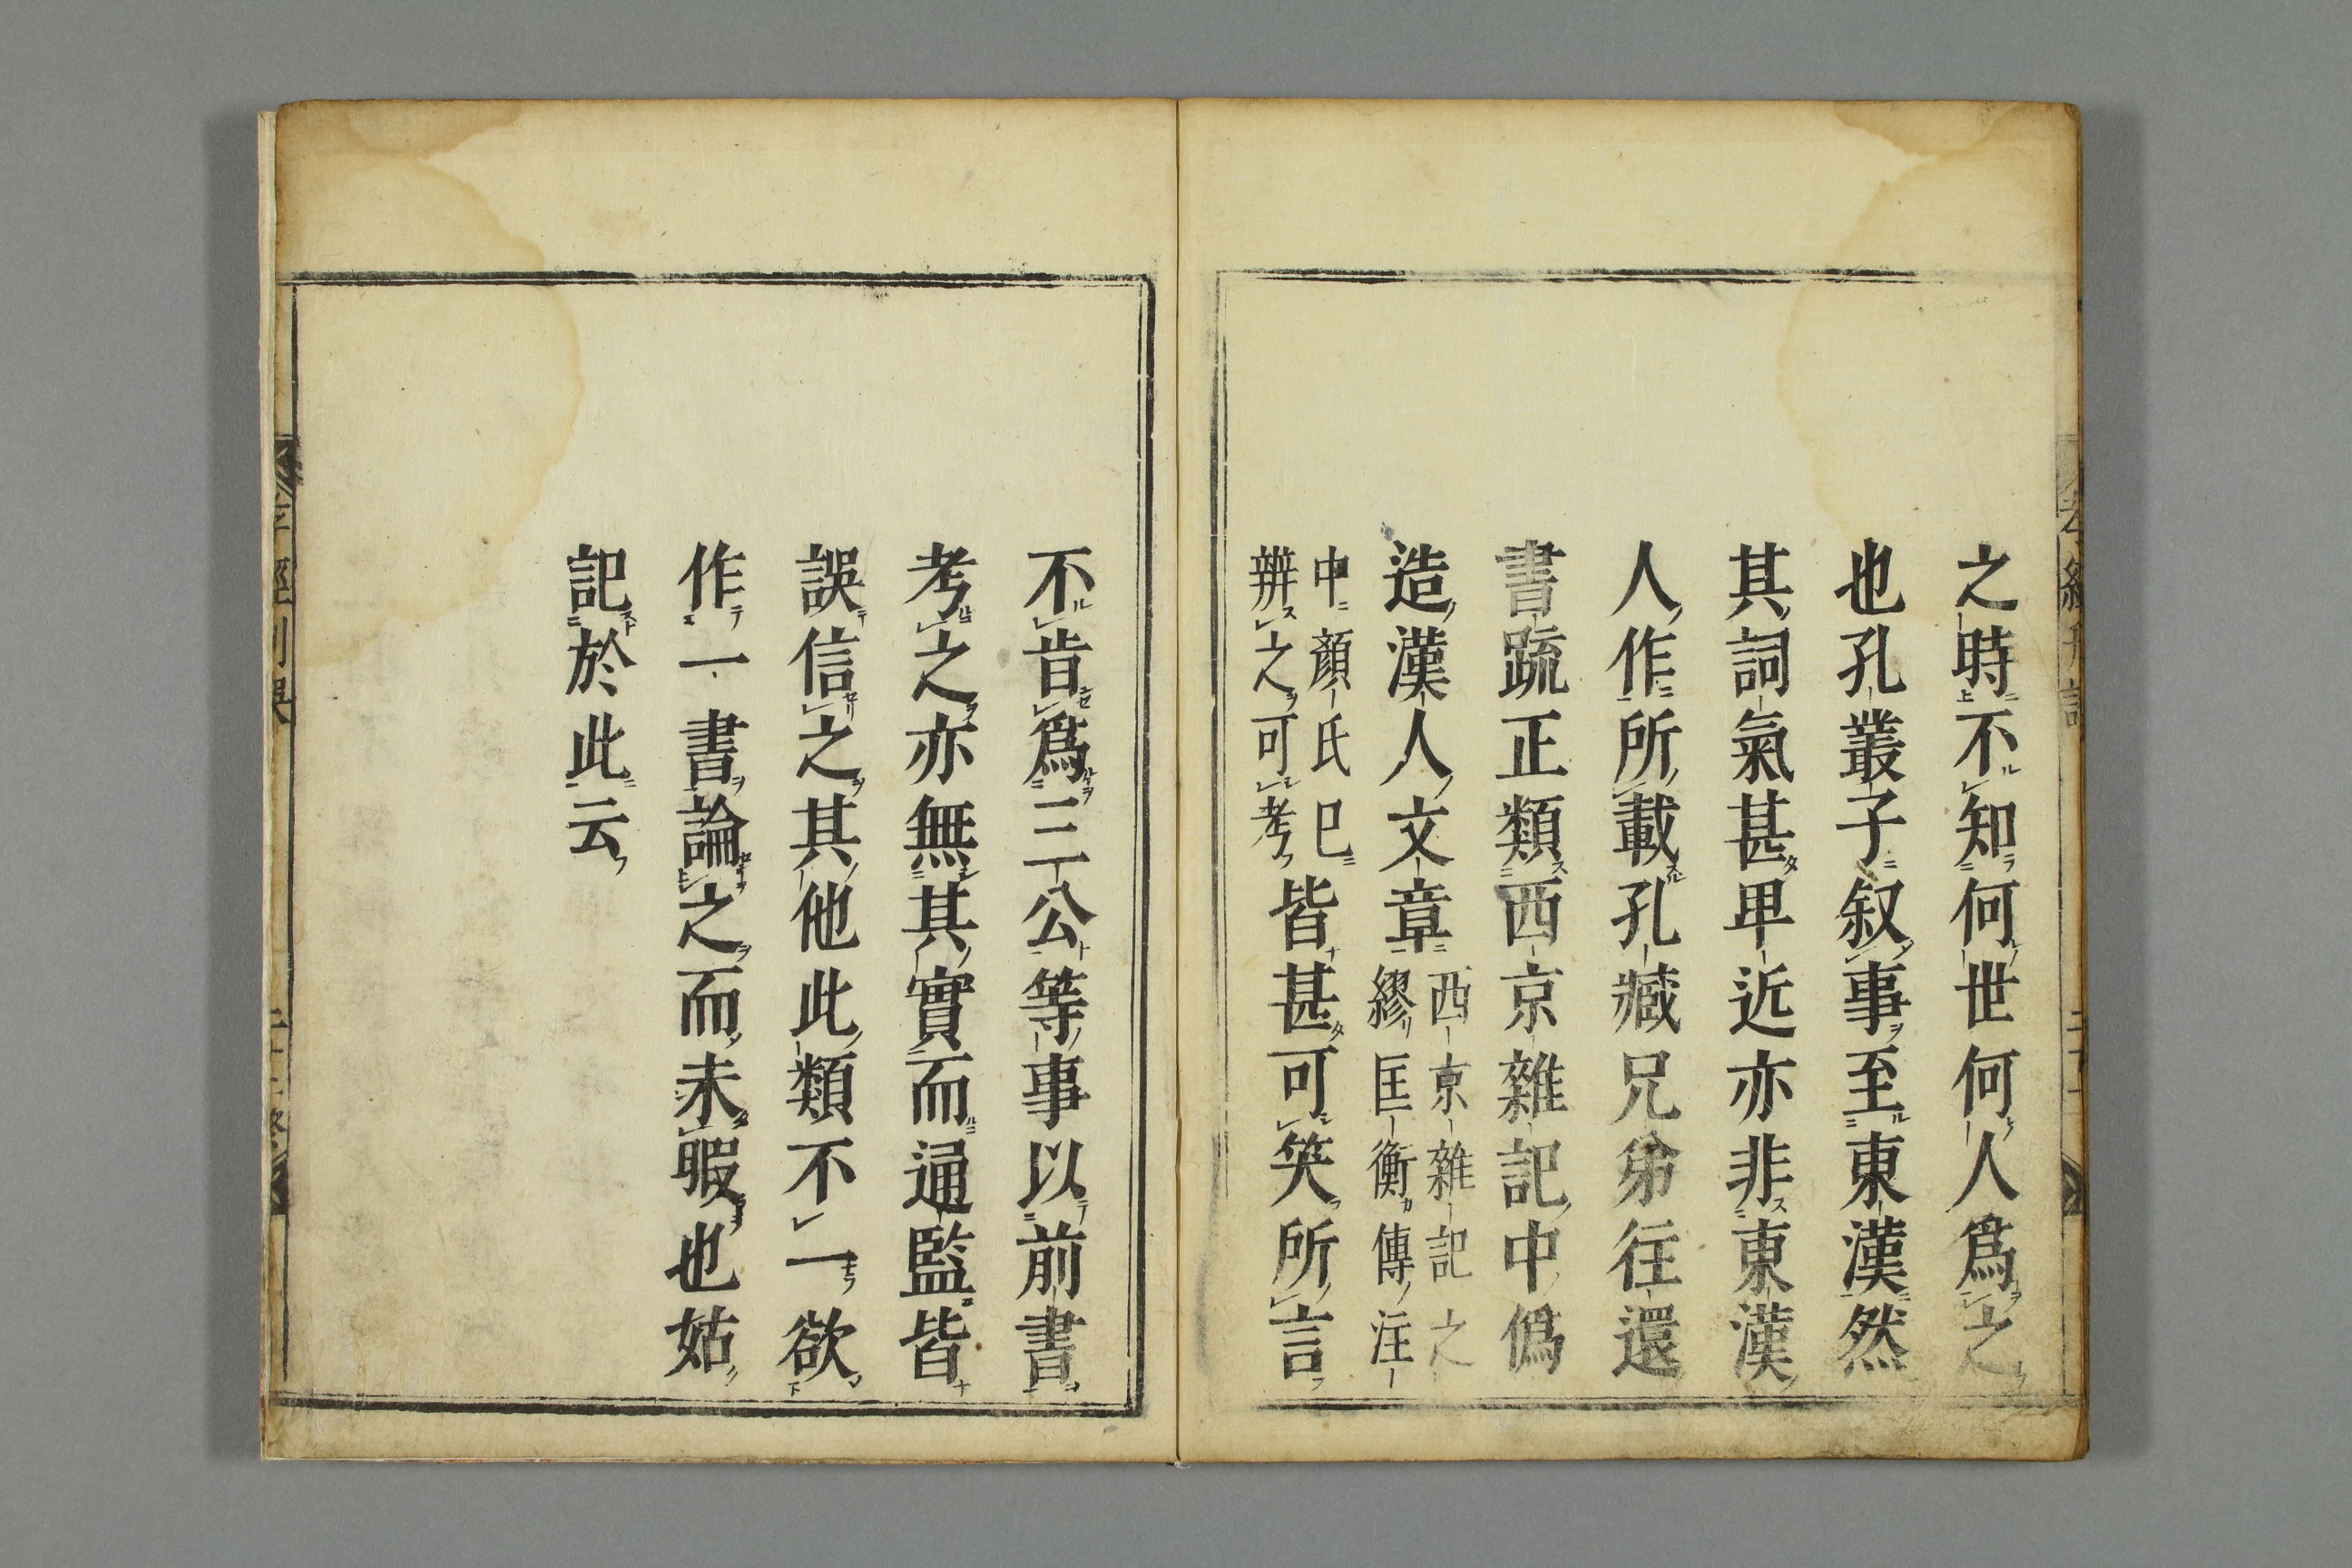 之時不知何世何人爲之
也孔叢子叙事至東漢然
其詞氣甚卑近亦非東漢
人作所載孔臧兄弟往還
書疏正類西京雜記中僞
造漢人文章西京雜記之
繆匡衡傳注
中顔氏已
辨之可考皆甚可笑所言
不肯爲三公等事以前書
考之亦無其實而通監皆
誤信之其他此類不一欲
作一書論之而未暇也姑
記於此云
孝經刊誤